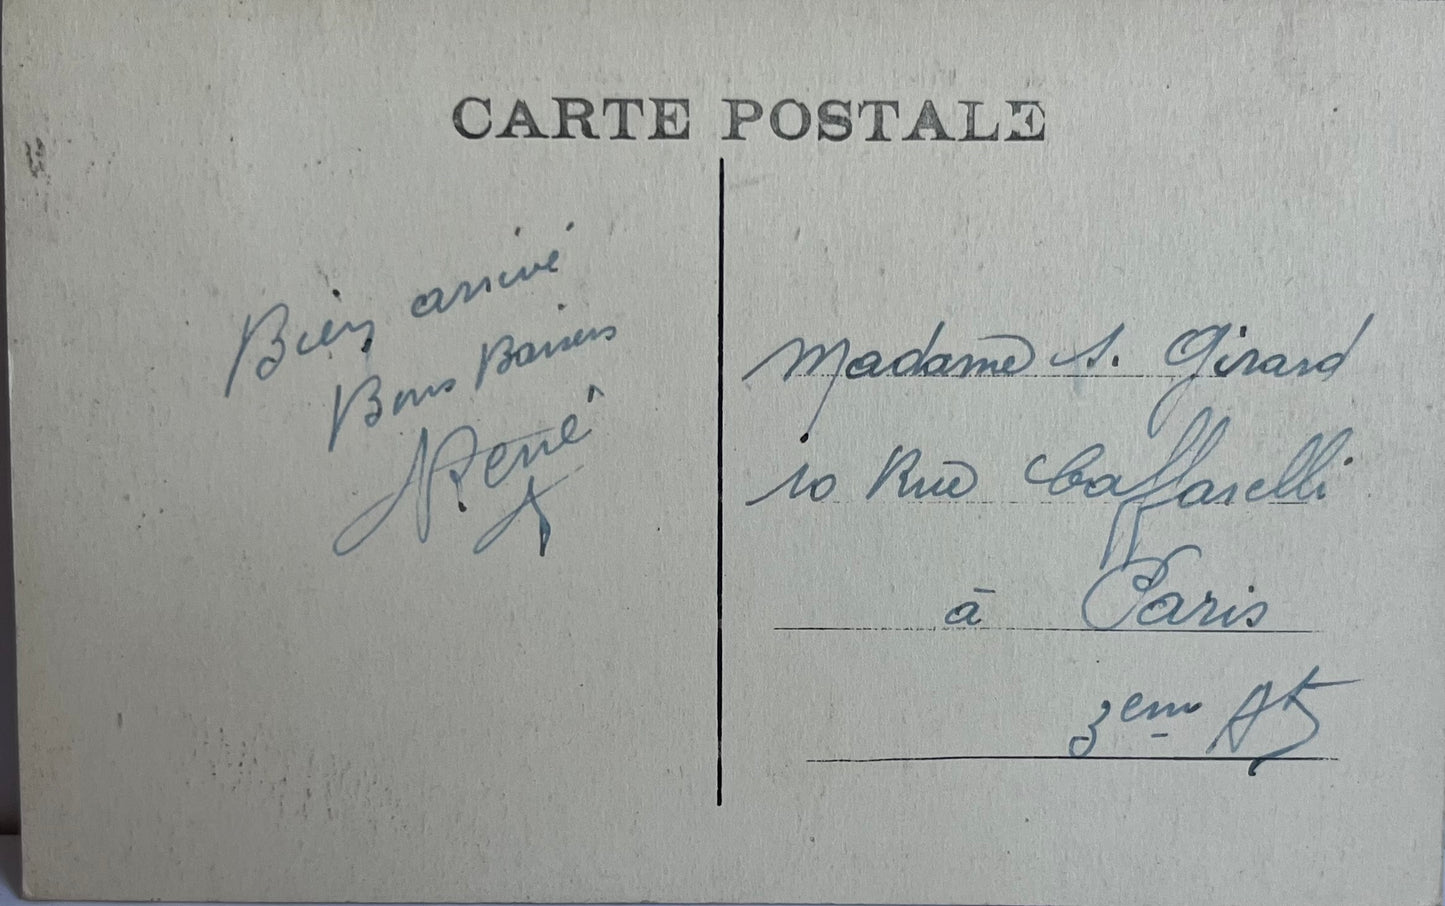 CARTE POSTALE
Bien arrivé
Bons Baisers
René
Madame S. Girard
10 Rue Caffarelli
à Paris
3em At